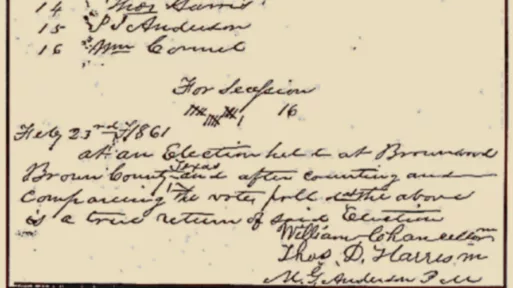 14 Thos Harris
15 S J Anderson
16 Wm Connel
For Secession
16
Feby 23rd 1861
at an Election held at Brownwood
Brown County Texas and after counting and
Comparing the votes poll the above
is a true return of said Election
William Chancellor
Thos. D. Harris m
M. G. Anderson